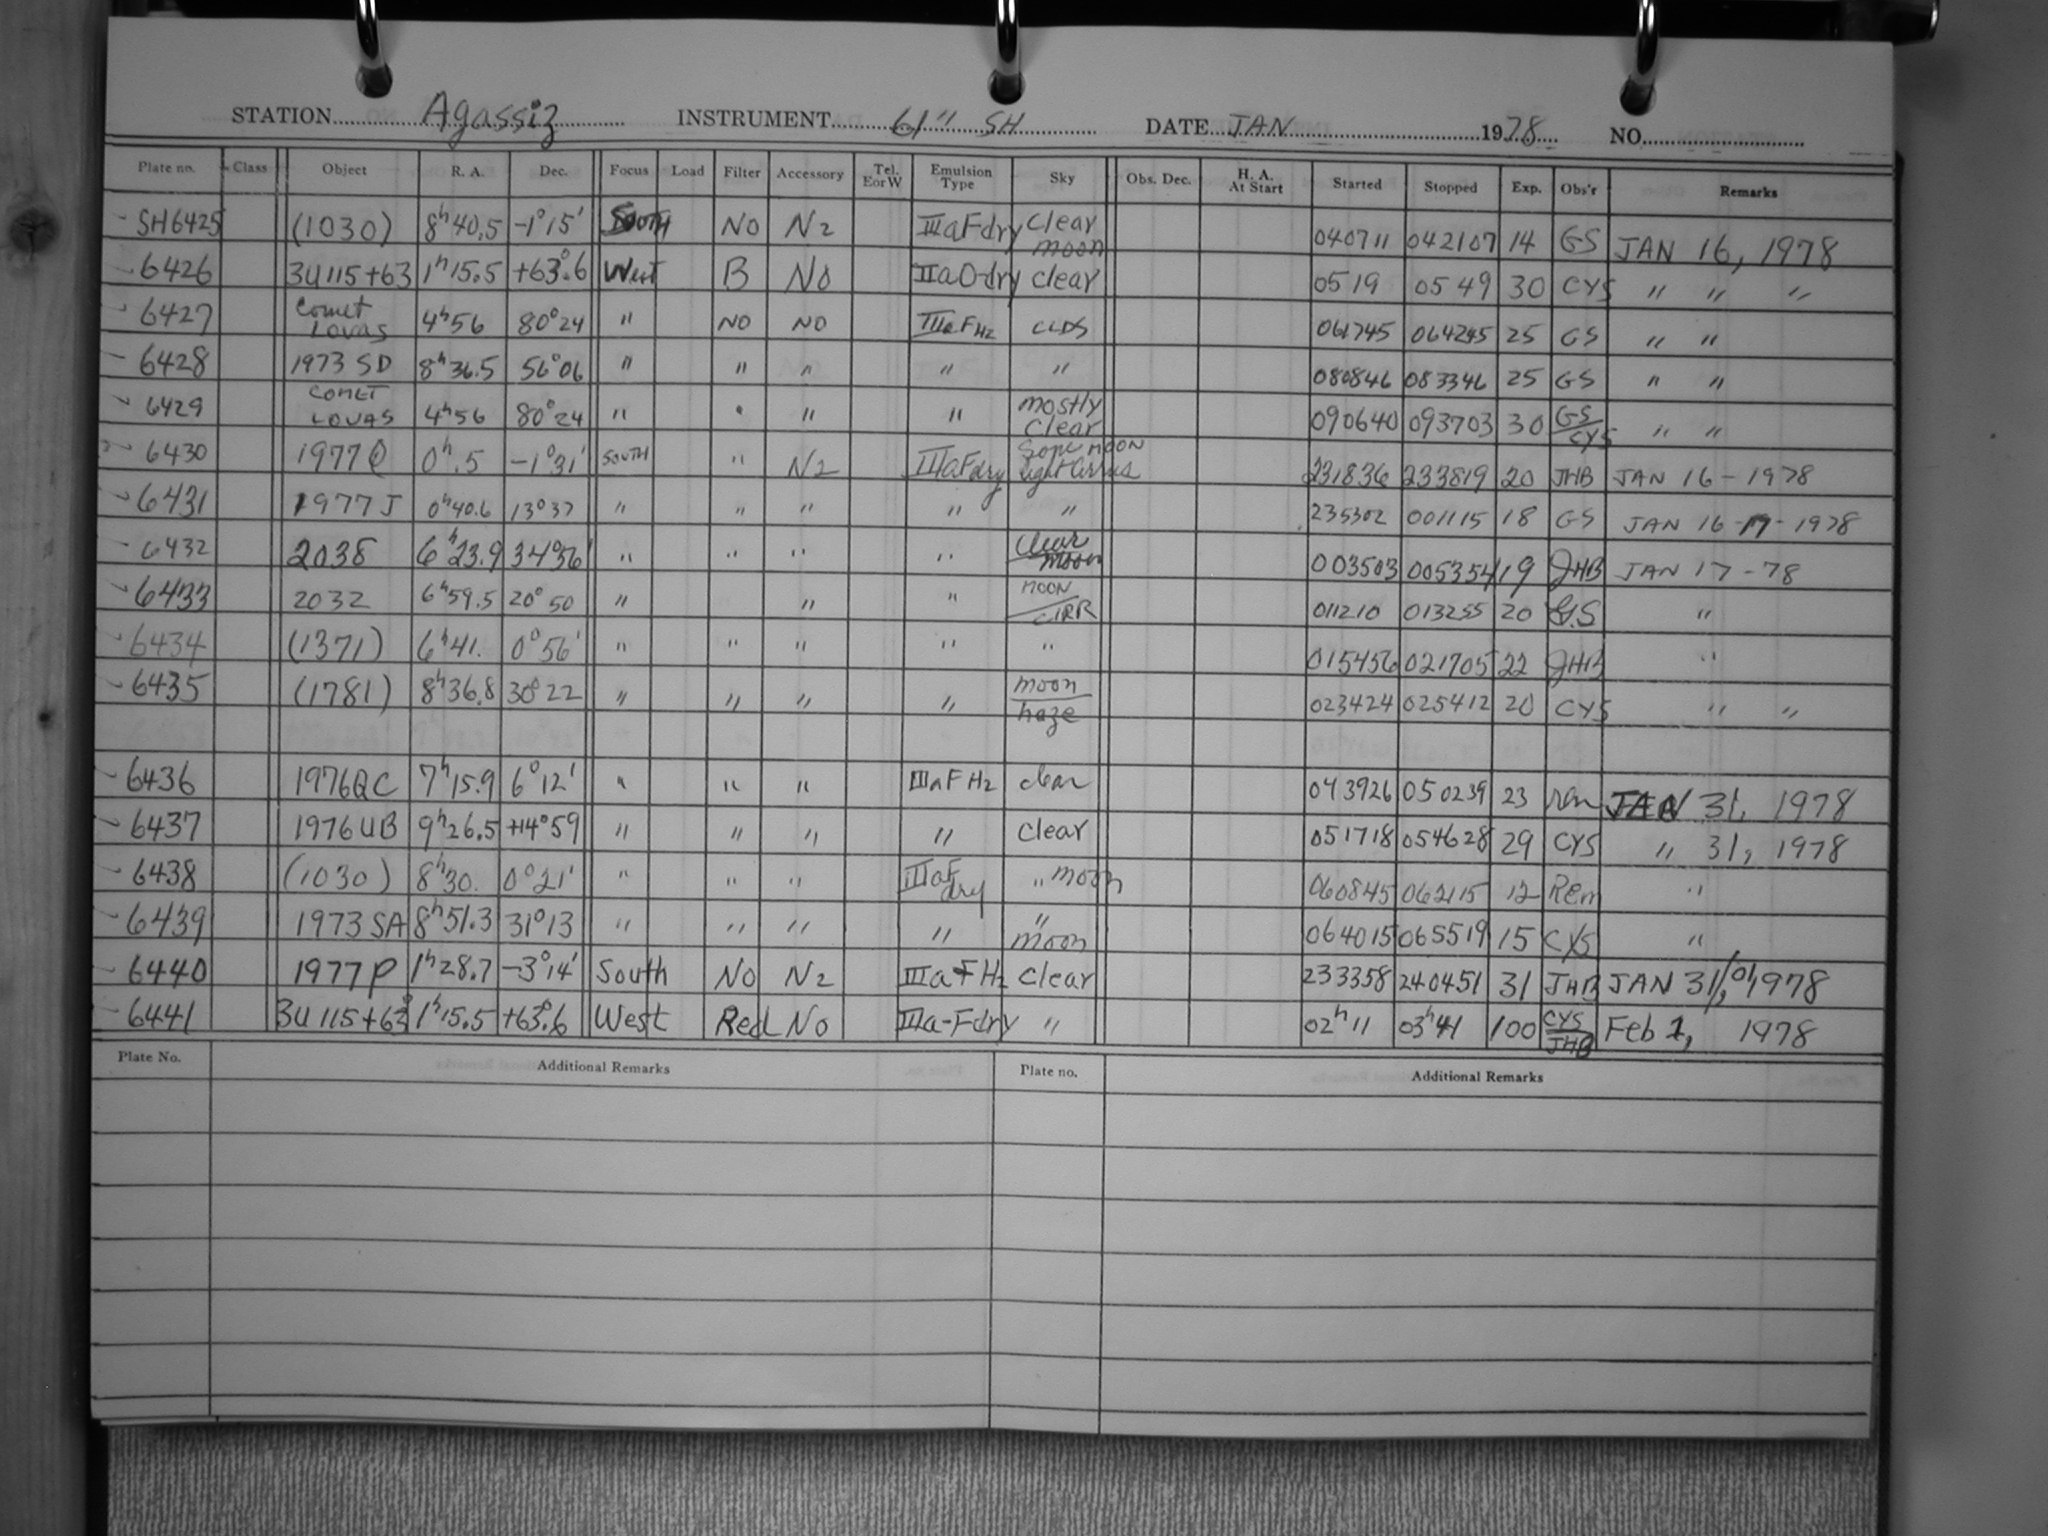 STATION Agassiz INSTRUMENT 61" SH DATE JAN 1978 NO.
Plate no. Class Object R. A. Dec. Focus Load Filter Accessory Tel. E or W Emulsion Type Sky Obs. Dec. H. A. At Start Started Stopped Exp. Obs'r Remarks
SH6425 (1030) 8h40.5 -1°15' South NO N2 IIIaFdry clear moon 040711 042107 14 GS JAN 16, 1978
6426 3U115+63 1h15.5 +63°.6 West B NO IIaO-dry clear 0519 0549 30 CYS " " "
6427 Comet Lovas 4h56 80°24 " NO NO IIIaFH2 CLDS 061745 064245 25 GS " "
6428 1973 SD 8h36.5 56°06 " " " " " 080846 083346 25 GS " "
6429 COMET LOVAS 4h56 80°24 " " " " mostly clear 090640 093703 30 GS/CYS " "
6430 1977Q 0h.5 -1°31' SOUTH " N2 IIIaFdry some moon light cirrus 231836 233819 20 JHB JAN 16-1978
6431 1977J 0h40.6 13°37 " " " " " 235302 001115 18 GS JAN 16-17-1978
6432 2038 6h23.9 34°56' " " " " clear moon 003503 005354 19 JHB JAN 17-78
6433 2032 6h59.5 20°50 " " " MOON/CIRR 011210 013255 20 G.S "
6434 (1371) 6h41. 0°56' " " " " " 015456 021705 22 JHB "
6435 (1781) 8h36.8 30°22 " " " " moon/haze 023424 025412 20 CYS " "
6436 1976QC 7h15.9 6°12' " " " IIIaF H2 clear 043926 050239 23 rem JAN 31, 1978
6437 1976UB 9h26.5 +14°59 " " " " clear 051718 054628 29 CYS " 31, 1978
6438 (1030) 8h30. 0°21' " " " IIIaF dry " moon 060845 062115 12 Rem "
6439 1973SA 8h51.3 31°13 " " " " " moon 064015 065519 15 CYS "
6440 1977P 1h28.7 -3°14' South NO N2 IIIaFH2 clear 233358 240451 31 JHB JAN 31/01, 1978
6441 3U115+63 1h15.5 +63°.6 West Red NO IIIa-Fdry " 02h11 03h41 100 CYS/JHB Feb 1, 1978
Plate No. Additional Remarks Plate no. Additional Remarks